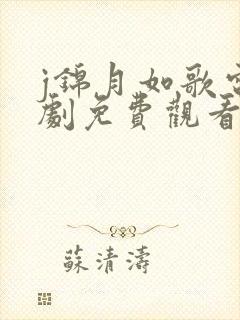 j錦月如歌電
劇免費觀看
蘇清濤